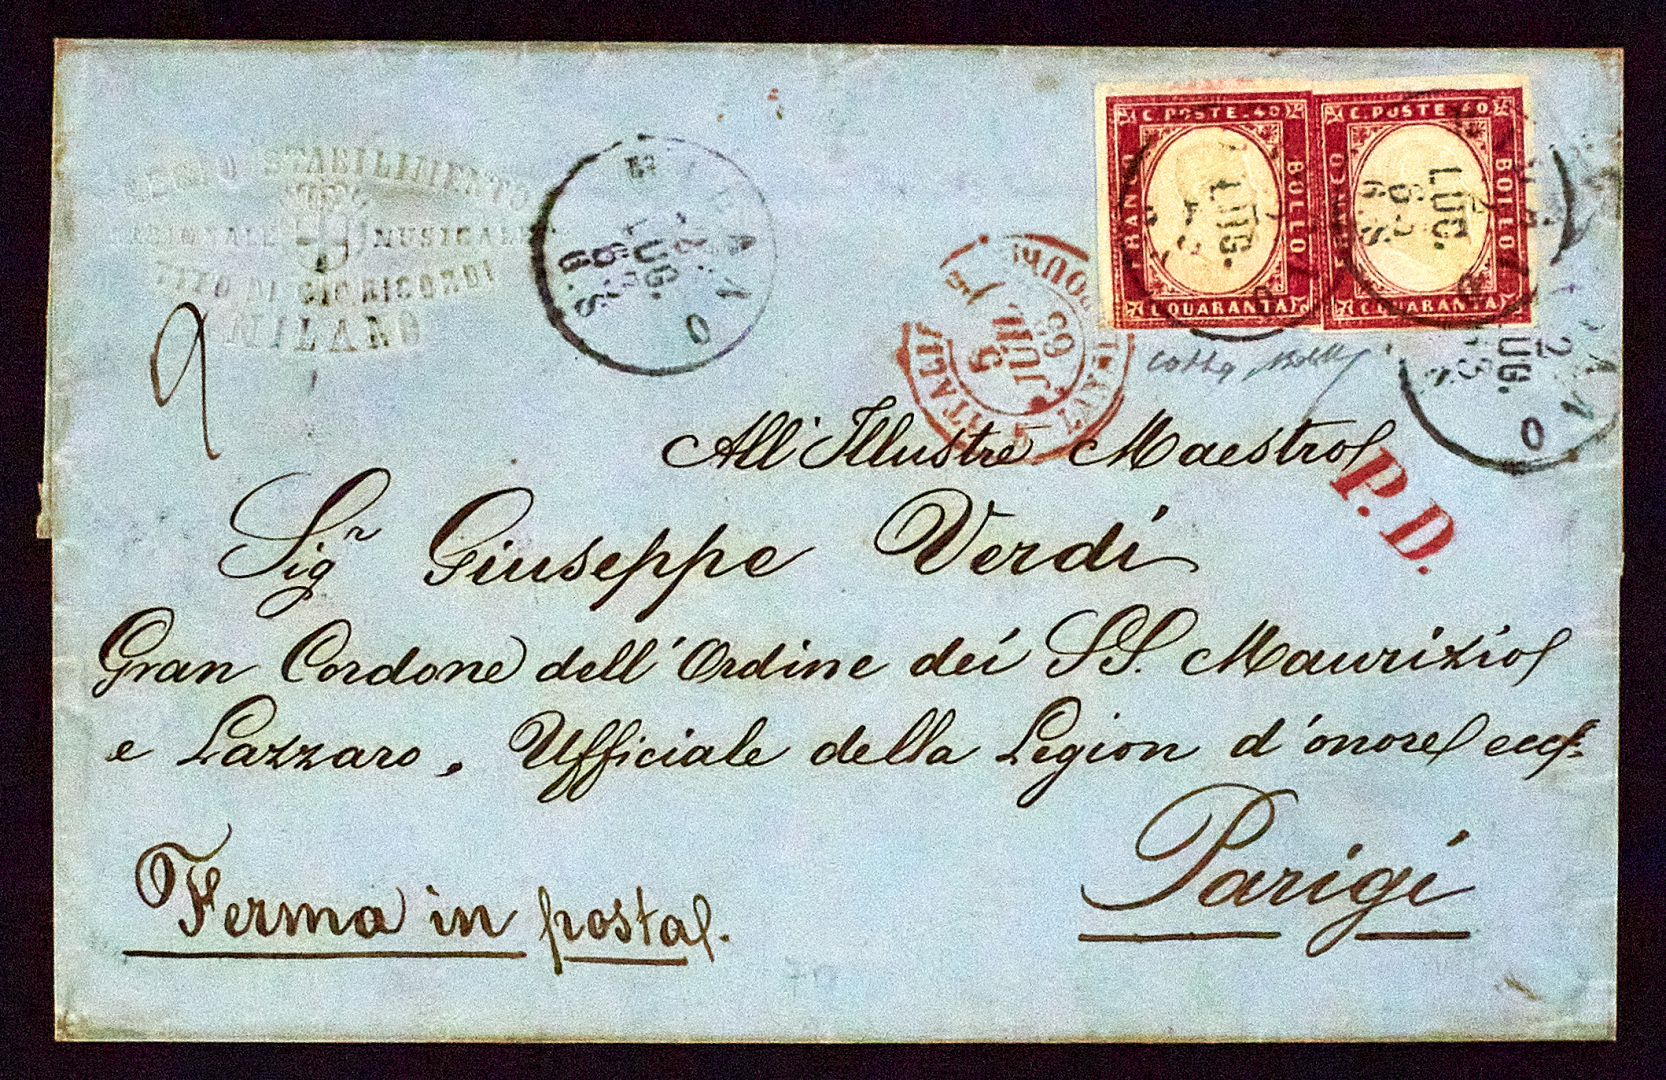 STABILIMENTO
NAZIONALE MUSICALE
TITO DI GIO RICORDI
MILANO
LUG.
C. POSTE. 40
FRANCO
BOLLO
C. QUARANTA
C. POSTE. 40
FRANCO
BOLLO
C. QUARANTA
LUG.
LUG.
2
LUG.
63
ITALIE
5
JUIL
63
P.D.
All' Illustre Maestro
Sigr Giuseppe Verdi
Gran Cordone dell' Ordine dei SS. Maurizio
e Lazzaro, Ufficiale della Legion d'onore ecc.
Parigi
Ferma in posta.